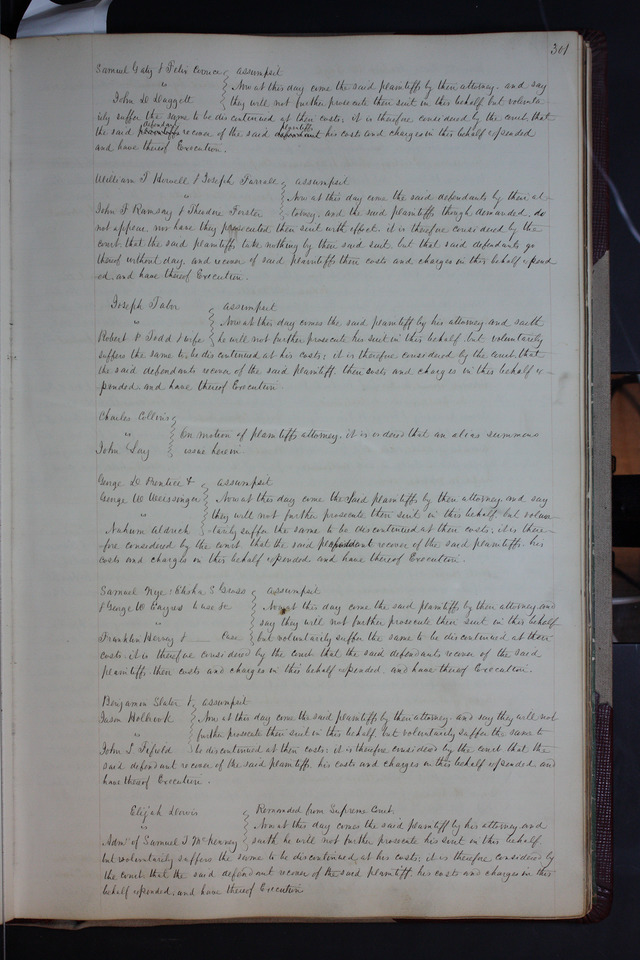 301
Samuel Gaty & Peter } assumpsit
" } Now at this day come the said plaintiffs by their attorney and say
John D Daggett } they will not further prosecute their suit in this behalf but volunta
rily suffer the same to be discontinued at their costs; it is therefore considered by the court that
the said defendant recover of the said plaintiffs his costs and charges in this behalf expended
and have thereof Execution.
William T Howell & Joseph } assumpsit
" } Now at this day come the said defendants by their at
John F Ramsay & Theodore Forster } torney, and the said plaintiffs though demanded, do
not appear, nor have they prosecuted their suit with effect. it is therefore considered by the
court that the said plaintiffs take nothing by their said suit but that said defendants go
thereof without day, and recover of said plaintiffs their costs and charges in this behalf expend
ed, and have thereof Execution.
Joseph Tabor } assumpsit
" } Now at this day comes the said plaintiff by his attorney and saith
Robert Todd & wife } he will not further prosecute his suit in this behalf but voluntarily
suffers the same to be discontinued at his costs; it is therefore considered by the court that
the said defendants recover of the said plaintiff their costs and charges in this behalf ex
pended and have thereof Execution
Charles Collins }
" } On motion of plaintiffs attorney, it is ordered that an alias summons
John Lay } issue herein
George D Prentice & } assumpsit
George W Weissinger } Now at this day come the said plaintiffs by their attorney, and say
" } they will not further prosecute their suit in this behalf but volun
Nahum Aldrich } tarily suffer the same to be discontinued at their costs; it is there-
fore considered by the court that the said defendant recover of the said plaintiffs his
costs and charges in this behalf expended and have thereof Execution.
Samuel Nye, Elisha S } assumpsit
& George W use &c } Now at this day come the said plaintiffs by their attorney and
" } say they will not further prosecute their suit in this behalf
Franklin Hervey & } but voluntarily suffer the same to be discontinued at their
costs; it is therefore considered by the court that the said defendants recover of the said
plaintiffs their costs and charges in this behalf expended, and have thereof Execution.
Benjamin Slater & } assumpsit
Jason Holbrook } Now at this day come the said plaintiffs by their attorney and say they will not
" } further prosecute their suit in this behalf but voluntarily suffer the same to
John S } be discontinued at their costs; it is therefore considered by the court that the
said defendant recover of the said plaintiffs his costs and charges in this behalf expended and
have thereof Execution.
Elijah } Remanded from Supreme Court
" } Now at this day comes the said plaintiff by his attorney and
Admr of Samuel T McKenney } saith he will not further prosecute his suit in this behalf,
but voluntarily suffers the same to be discontinued at his costs; it is therefore considered by
the court that the said defendant recover of the said plaintiff his costs and charges in this
behalf expended, and have thereof Execution